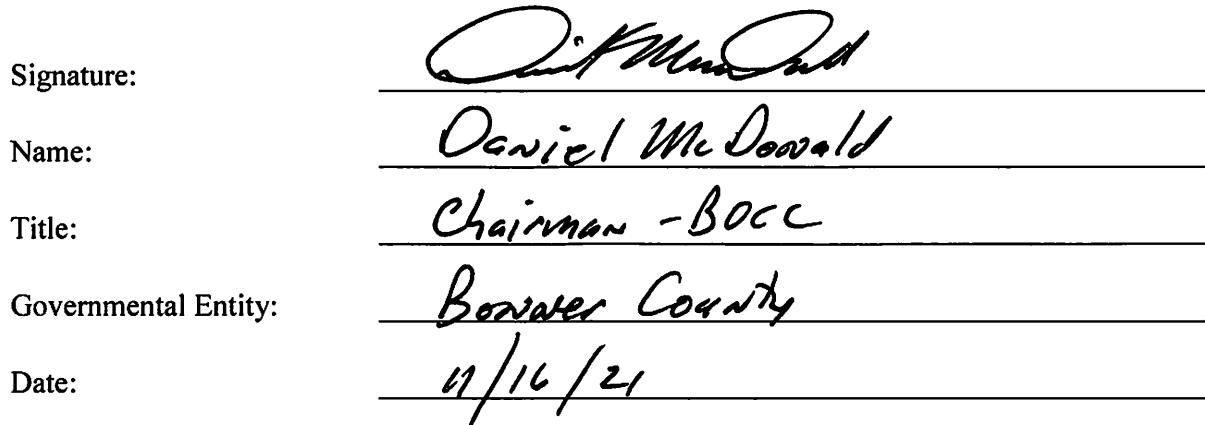 Signature: Daniel McDonald
Name: Daniel McDonald
Title: Chairman - BOCC
Governmental Entity: Bonner County
Date: 11/16/21